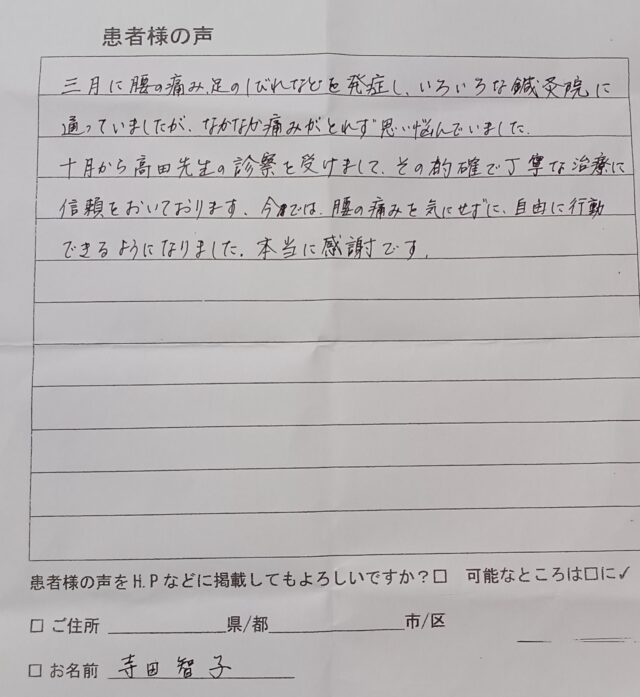 患者様の声
三月に腰の痛み、足のしびれなどを発症し、いろいろな鍼灸院に
通っていましたが、なかなか痛みがとれず思い悩んでいました。
十月から高田先生の診察を受けまして、その的確で丁寧な治療に
信頼をおいております。今では、腰の痛みを気にせずに、自由に行動
できるようになりました。本当に感謝です。
患者様の声をH.Pなどに掲載してもよろしいですか?□ 可能なところは□に✓
□ ご住所 県/都 市/区
□ お名前 寺田智子